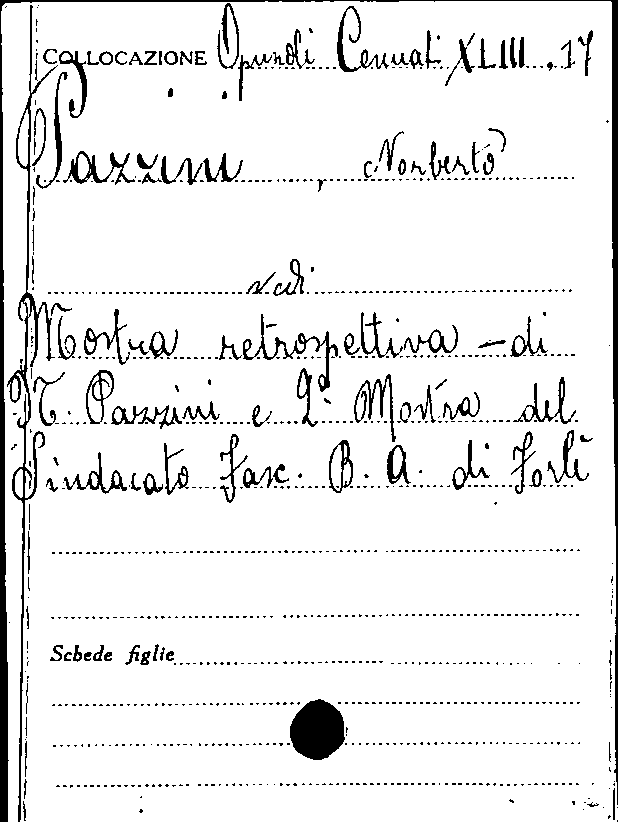 COLLOCAZIONE Opuscoli Cennati XLIII . 17
Pazzini , Norberto
vedi
Mostra retrospettiva - di
N. Pazzini e 2ª Mostra del
Sindacato Fasc. B. A. di Forlì
Schede figlie